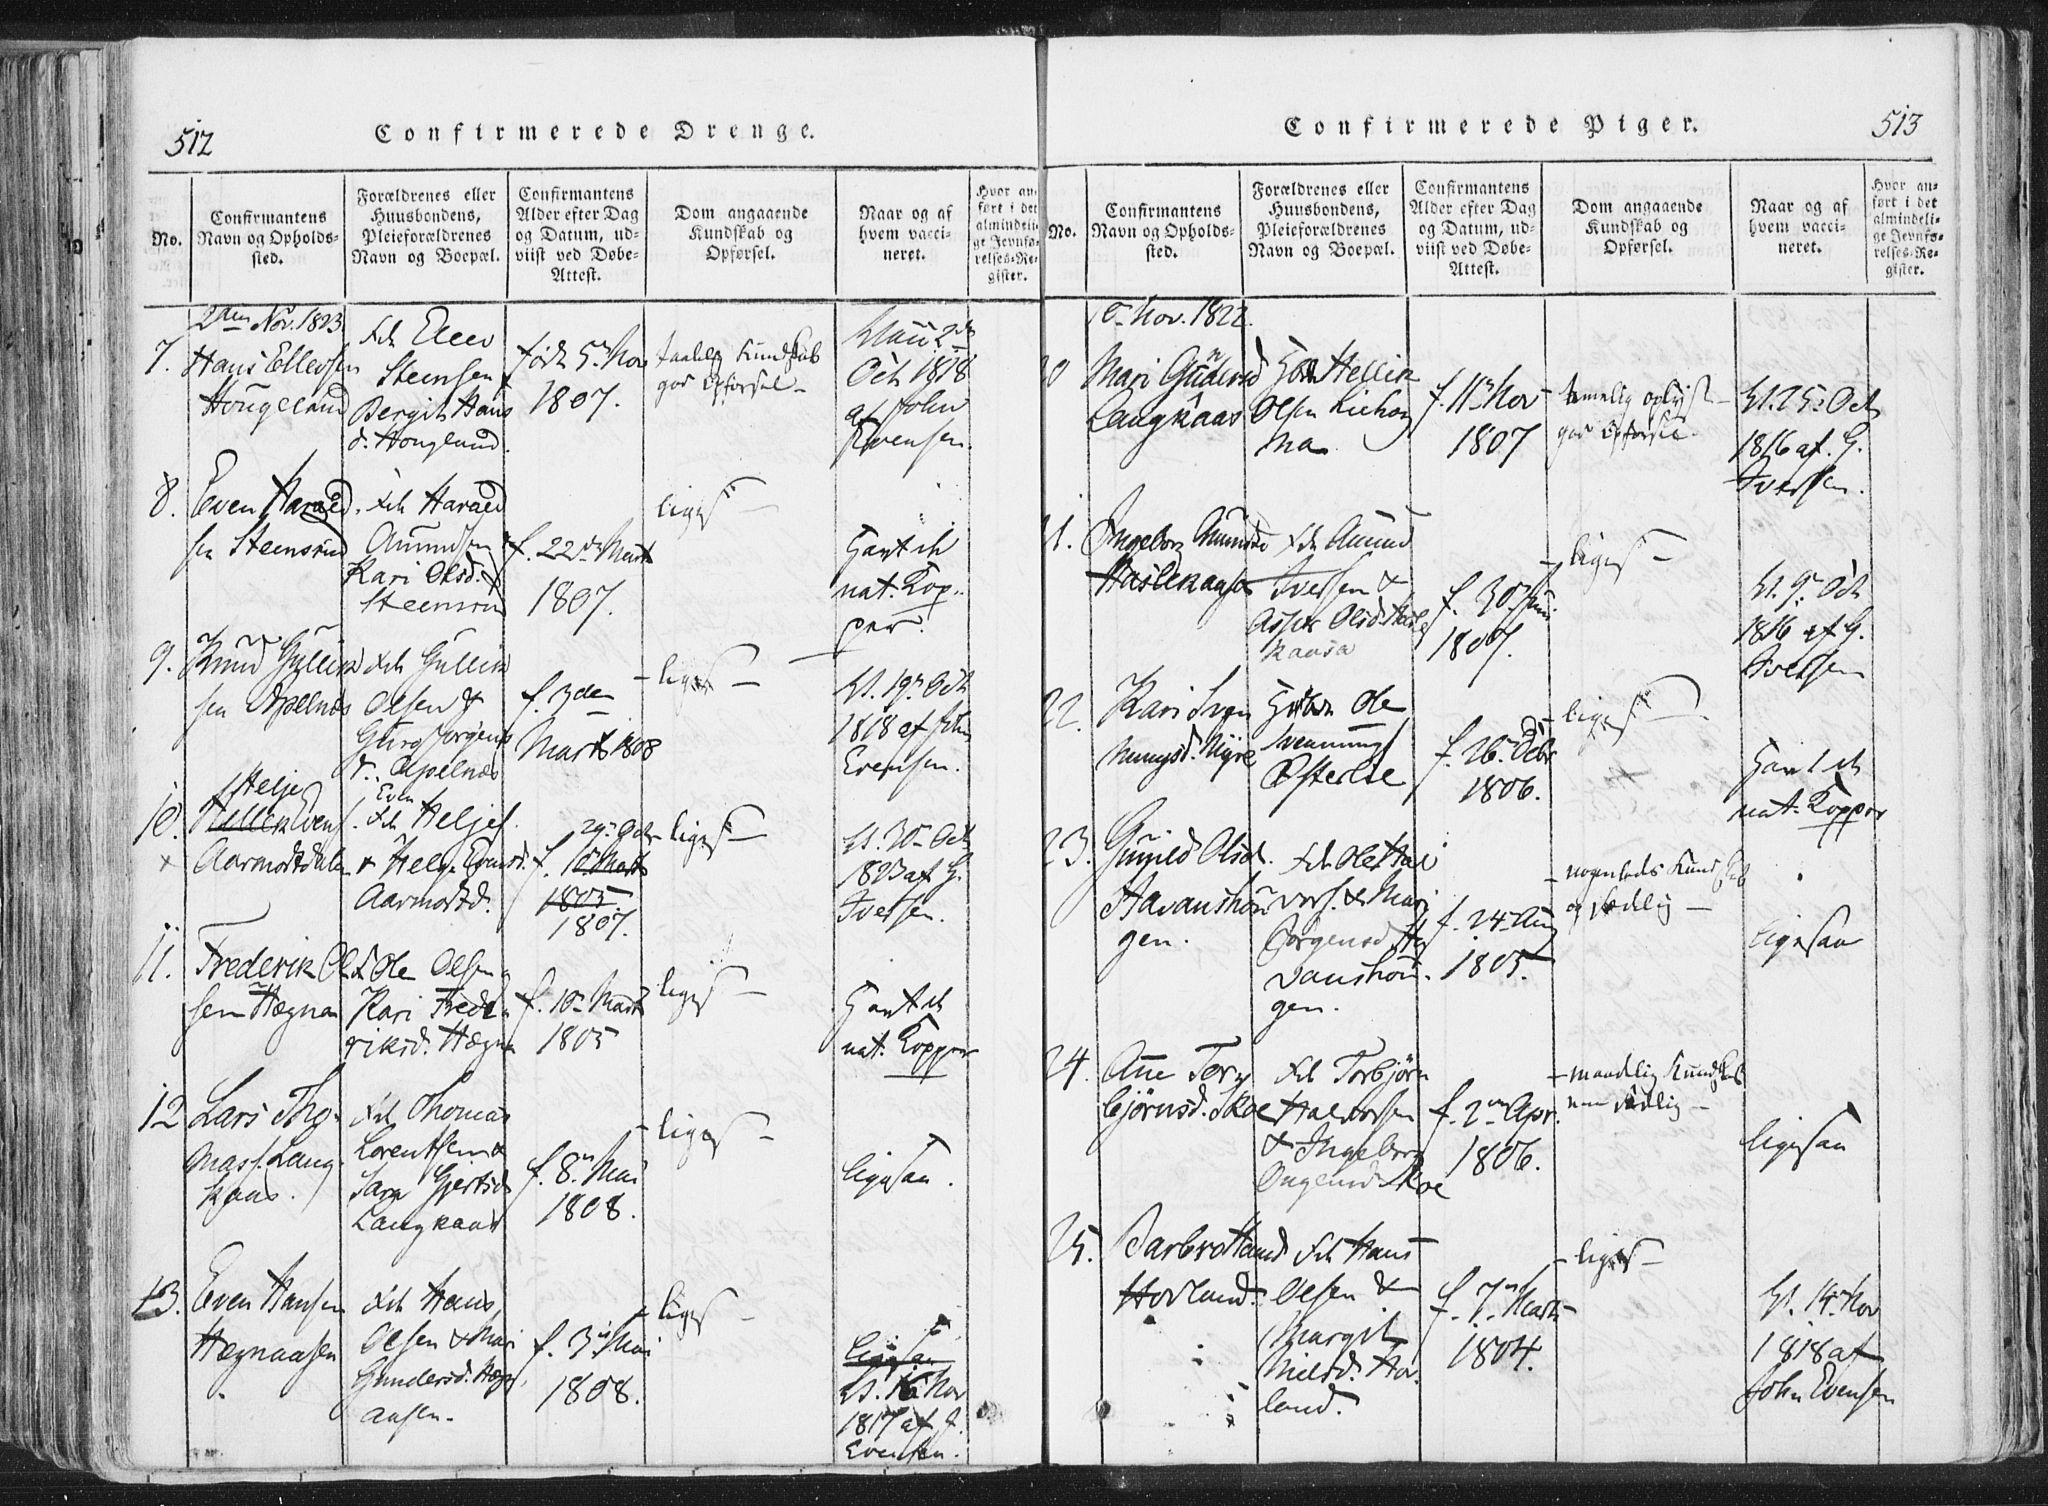 512
Confirmerede Drenge.
No.
Confirmantens
Navn og Opholds-
sted.
Forældrenes eller
Huusbondens,
Pleieforældrenes
Navn og Boepæl.
Confirmantens
Alder efter Dag
og Datum, ud-
viist ved Døbe-
Attest.
Dom angaaende
Kundskab og
Opførsel.
Naar og af
hvem vacci-
neret.
Hvor an-
ført i det
almindeli-
ge Jevnfø-
relses-Re-
gister.
2den Nov. 1823.
7.
Hans Ellevsen
Hougeland
Steensen
Bergit Hans
d. Houglund.
født 5te Nov
1807.
Kundskab
god Opførsel
2den
Oct 1818
af John
Evensen.
8.
Even Harald
sen Steensrud
F. Harald
Amundsen
Kari Olsd.
Steensrud
f. 22de Marts
1807.
ligesaa
Havt de
nat. Kop-
per.
9.
Knud Gullik
sen Apelnæs
F. Gullik
Olsen &
Guro Jørgens
d. Apelnæs
f. 3den
Marts 1808
ligesaa
d. 19de Oct
1818 af John
Evensen.
10.
Helje
Evens.
Aarmodtdalen
Even
Heljes.
& Helge Evensd.
Aarmodtd.
29de Octr
f. 10de Marts
1805
1807.
ligesaa
d. 30te Oct
1823 af G.
Iversen.
11.
Frederik Ol
sen Hægna
F. Ole Olsen
Kari Fred
riksd. Hægna
f. 10de Marts
1805
ligesaa
Havt de
nat. Kopper
12
Lars Tho-
mass. Lang
kaas.
F. Thomas
Lorentsen &
Sara Gjertsd
Langkaas
f. 8de Mai
1808.
ligesaa
ligesaa.
13.
Even Hansen
Hægnaasen
F. Hans
Olsen & Mari
Gundersd. Hægn
aasen.
f. 3die Mai
1808.
ligesaa
ligesaa
d. 16de Nov
1817 af J.
Evensen.
513
Confirmerede Piger.
No.
Confirmantens
Navn og Opholds-
sted.
Forældrenes eller
Huusbondens,
Pleieforældrenes
Navn og Boepæl.
Confirmantens
Alder efter Dag
og Datum, ud-
viist ved Døbe-
Attest.
Dom angaaende
Kundskab og
Opførsel.
Naar og af
hvem vacci-
neret.
Hvor an-
ført i det
almindeli-
ge Jevnfø-
relses-Re-
gister.
Nov. 1822.
Mari Gundersd
Langkaas
Hellik
Olsen
f. 11te Nov
1807
temelig oplyst
god Opførsel.
d. 25de Oct
1816 af. G.
Iversen.
Ingeborg Amundsd
Haslekaasa
F. Amund
Iversen &
Olsd. Hasle
kaasa
f. 30te Juni
1807.
ligesaa
d. 9de Oct
1816 af G.
Iversen
22.
Kari Sven
nungsd. Myre
Ole
Svennungs
f. 26de
1806.
ligesaa
Havt de
nat. Kopper
23.
Gunild Olsd.
Havanshou
gen.
F. Ole Hal
vors. & Mari
Jørgensd. Ha
vanshou-
gen.
f. 24de Aug
1805.
nogenleds Kundskab
og sædelig
ligesaa
24.
Ane Tor
bjørnsd. Skoe
F. Torbjørn
Halvorsen
& Ingeborg
Skoe
f. 2den Apr.
1806.
maadelig Kundskab
men sædelig
ligesaa
25.
Barbro Hansd
Hovland.
F. Hans
Olsen &
Margit
Nielsd. Hov
land.
f. 7de Marts
1804.
ligesaa
d. 14de Nov
1818 af
John Evensen